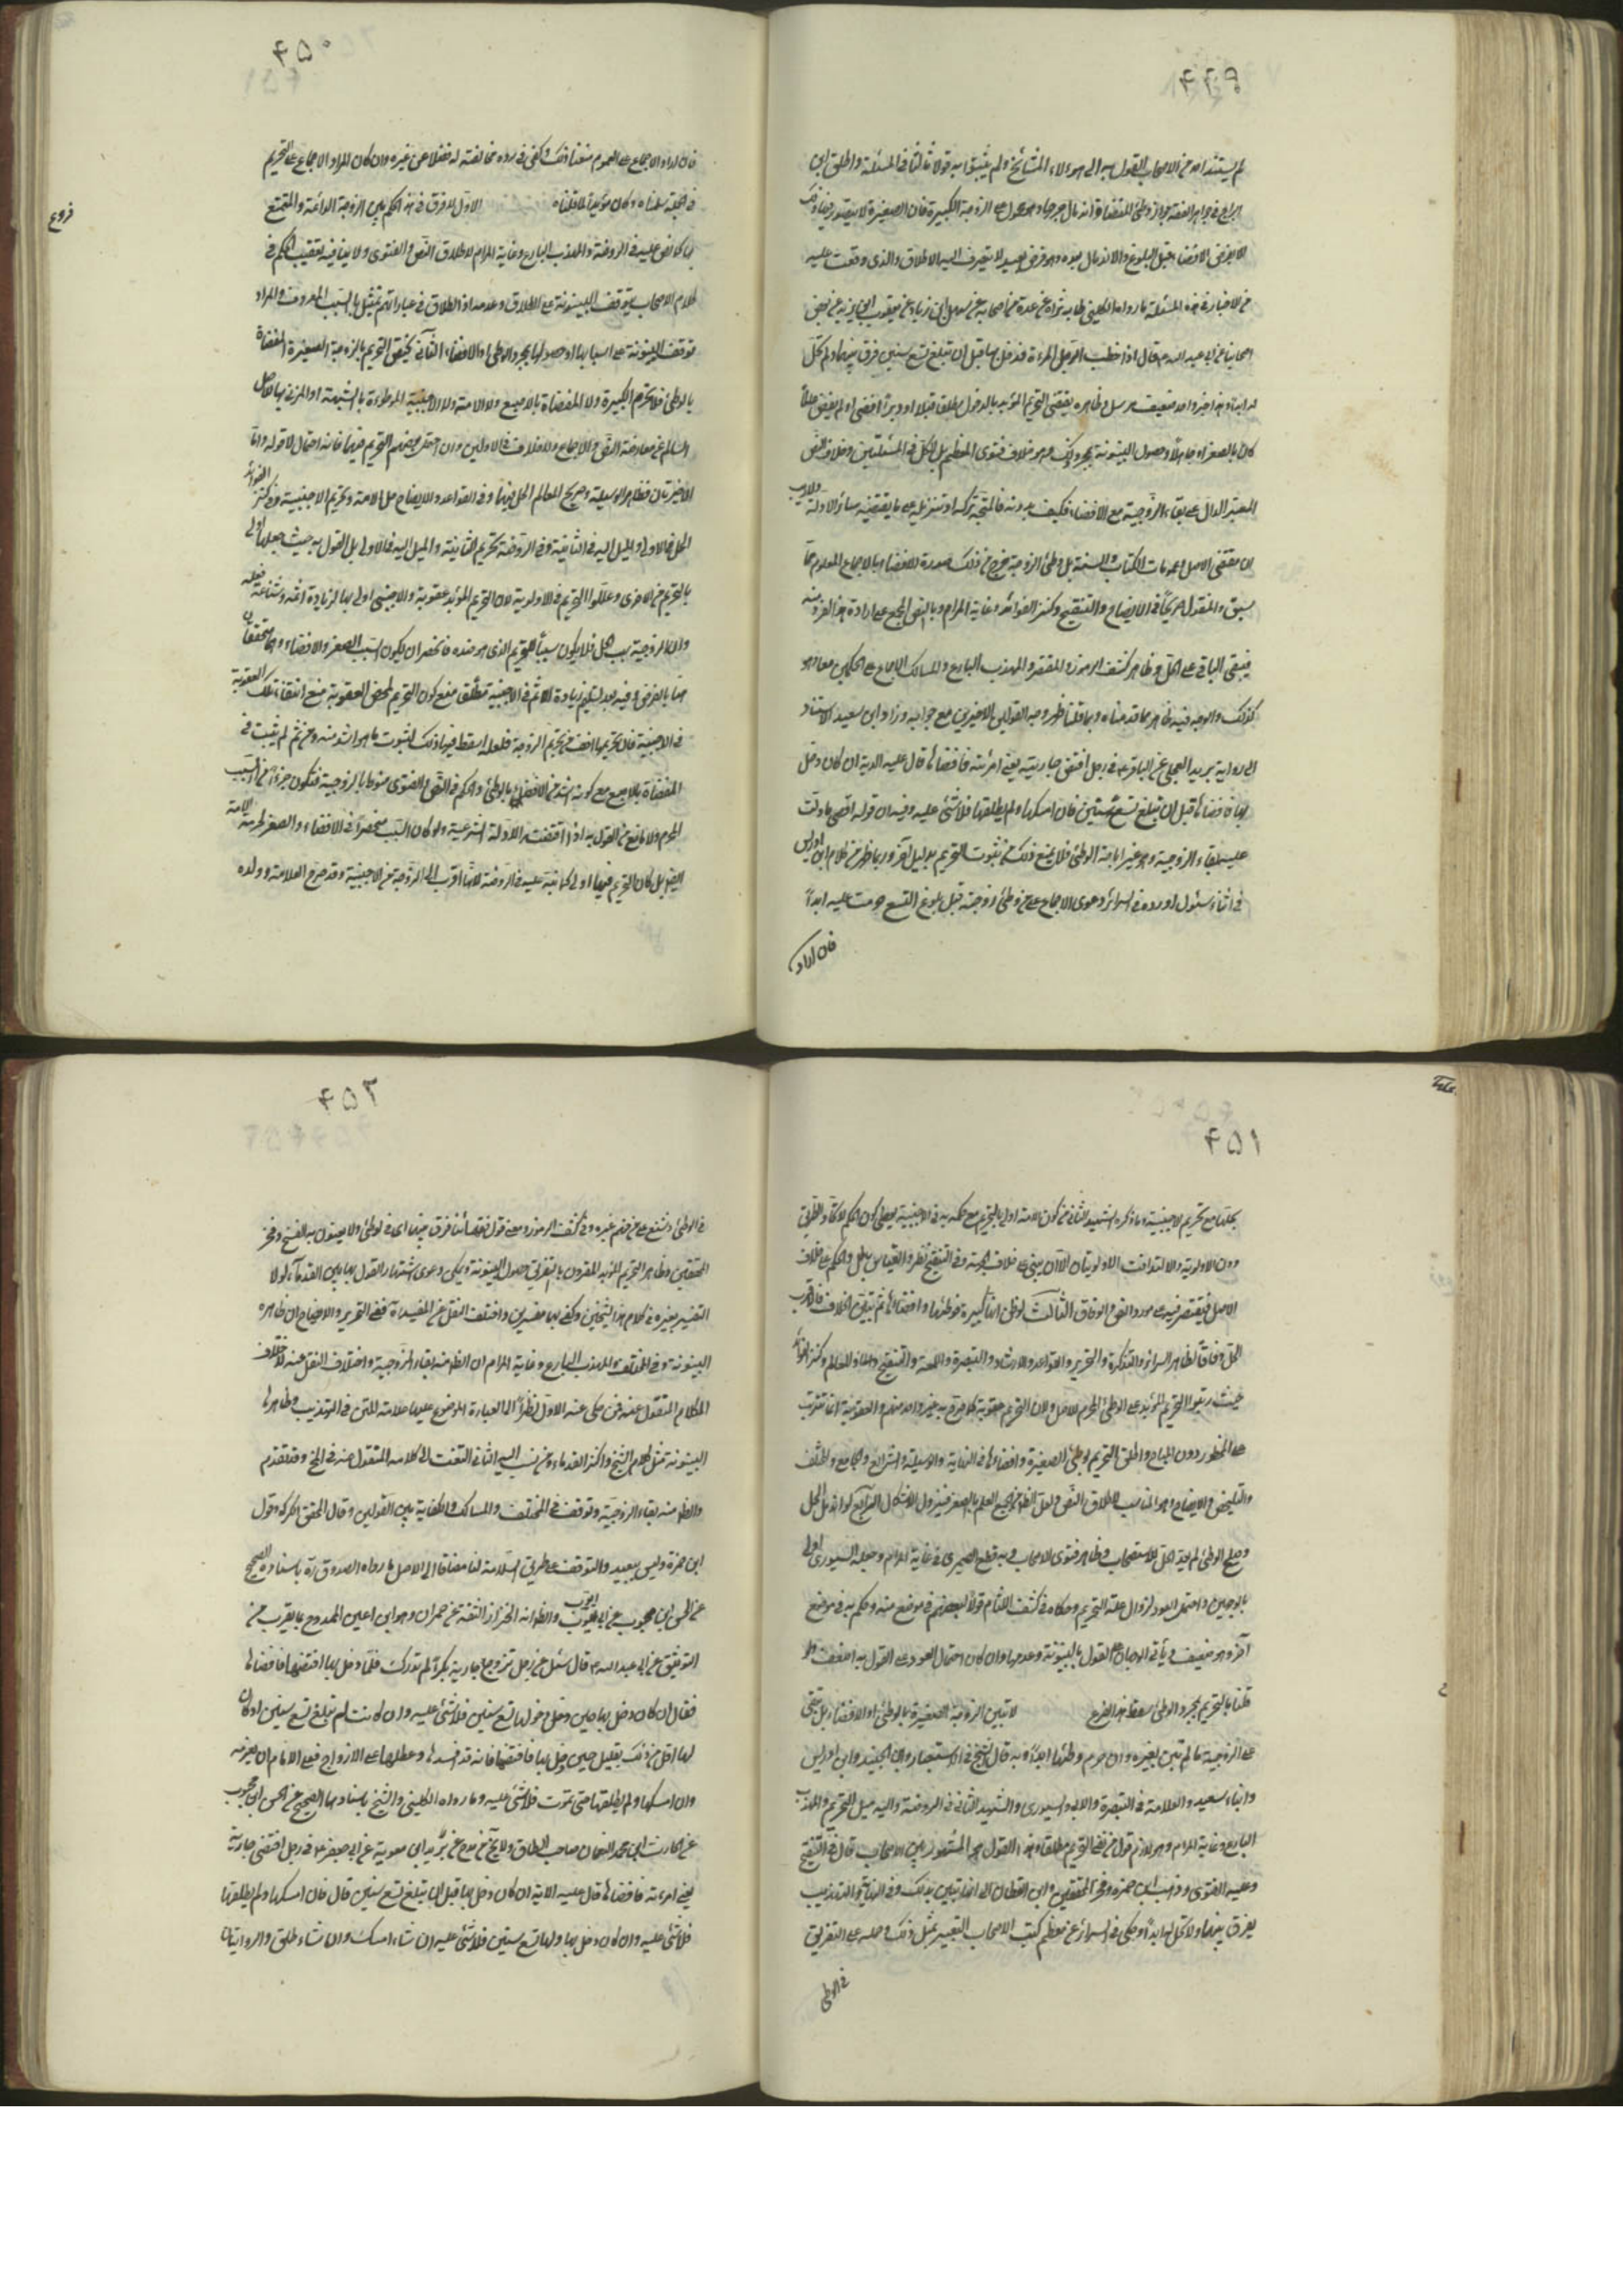 ۴۴۹
لم يستند احد من الاصحاب القول به الى هولاء المشائخ ولم يثبتوا به قولا ثالثا فى المسئلة واطلق ابن
البراج فى جواهر الفقه جواز وطئ المفضاة اذا اندمال جرحها وهو محمول على الزوجة الكبيرة فان الصغيرة لا يتصور فيها ذلك
الا بفرض الافضاء قبل البلوغ والاندمال بعده وهو فرض بعيد لا ينصرف اليه الاطلاق والذى وقفت عليه
من الاخبار فى هذه المسئلة ما رواه الكلينى طاب ثراه عن عدة من اصحابه عن سهل ابن زياد عن يعقوب ابن يزيد عن بعض
اصحابنا عن ابى عبد الله ع قال اذا خطب الرجل المرءة فدخل بها قبل ان تبلغ تسع سنين فرق بينهما ولم تحل
له ابدا وهذا خبر واحد ضعيف مرسل وظاهره يقتضى التحريم المؤبد بالدخول مطلقا قبلا او دبرا افضى او لم يفض عالماً
كان بالصغر او جاهلاً وحصول البينونة بمجرد ذلك وهو خلاف فتوى المعظم بل الكل فى المسئلتين وخلاف النص
المعتبر الدال على بقاء الزوجية مع الافضاء فكيف بدونه فالمتجه تركه او تنزيله على ما يقتضيه سائر الادلة ولا ريب
ان مقتضى الاصل وعمومات الكتاب والسنة حل وطئ الزوجة خرج من ذلك صورة الافضاء بالاجماع المعلوم مما
سبق والمنقول صريحاً فى الايضاح والتنقيح وكنز الفوائد وغاية المرام وبالنص المجمع على ارادة هذا الفرد منه
فيبقى الباقى على الحل وظاهر كشف الرموز والمقتصر والمهذب البارع والمسالك الاجماع على الحكمين معا وهو
كذلك والوجه فيه ظاهر مما قدمناه وبما قلنا ظهر وجه القولين الاخيرين مع جوابه وزاد ابن سعيد الاستناد
الى رواية بريد العجلى عن الباقر ع فى رجل افتض جاريته يعنى امرئته فافضاها قال عليه الدية ان كان دخل
بها فافضاها قبل ان تبلغ تسع سنين فان امسكها ولم يطلقها فلا شئ عليه وفيه ان قوله اقصى ما دلت
عليه بقاء الزوجية وهو غير اباحة الوطئ فلا يمنع ذلك من ثبوت التحريم بدليل آخر وربما ظهر من كلام ابن ادريس
فى اثناء سئول اورده فى السرائر دعوى الاجماع على من وطئ زوجته قبل بلوغ التسع حرمت عليه ابداً
فان اراد
۴۵۰
فروع
فان اراد الاجماع على العموم منعنا ذلك وكفى فى رده مخالفته له فضلا عن غيره وان كان المراد الاجماع على التحريم
فى الجملة سلمناه وكان مؤيدا لما قلناه الاول لا فرق فى هذا الحكم بين الزوجة الدائمة والمتمتع
بها كما نص عليه فى الروضة والمهذب البارع وغاية المرام لاطلاق النص والفتوى ولا ينافيه تعقيب الحكم فى
كلام الاصحاب بتوقف البينونة على الطلاق وعدمه اذ الطلاق فى عباراتهم تمثيل بالسبب المعروف والمراد
توقف البينونة على اسبابها او حصولها بمجرد الوطئ والافضاء الثانى يختص التحريم بالزوجة الصغيرة المفضاة
بالوطئ فلا تحرم الكبيرة ولا المفضاة بالاصبع ولا الامة ولا الاجنبية الموطوءة بالشبهة او المزنى بها للاصل
السالم عن معارضة النص والاجماع ولا خلاف فى الاولين وان احتمل بعضهم التحريم فيهما فانه احتمال لا قول واما
الاخيرتان فظاهر الوسيلة وصريح المعالم الحل فيهما وفى القواعد والايضاح حل الامة وتحريم الاجنبية وفى كنز الفوائد
الحل فى الاولى والميل اليه فى الثانية وفى الروضة تحريم الثانية والميل اليه فى الاولى بل القول به حيث جعلها اولى
بالتحريم من الاخرى وعللوا التحريم فى الاولوية لان التحريم المؤبد عقوبة والاجنبى اولى بها لزيادة اثمه وشناعة فعله
وان الزوجية سبب الحل فلا يكون سببا للتحريم الذى هو ضده فانحصر ان يكون السبب الصغر والافضاء وهما متحققان
هنا بالفرض وفيه بعد تسليم زيادة الاثم فى الاجنبية مطلق منع كون التحريم لمحض العقوبة منع انتفاء تلك العقوبة
فى الاجنبية فان تحريمها اخف من تحريم الزوجة فلعله اسقط فيها ذلك لثبوت ما هو اشد منه ومن ثم لم يثبت فى
المفضاة بالاصبع مع كونه اشد من الافضاء بالوطئ والحكم فى النص والفتوى منوط بالزوجية فتكون جزءا من السبب
المحرم ولا مانع من القول به اذا اقتضت الادلة الشرعية ولو كان السبب منحصراً فى الافضاء والصغر لحرمت الامة
ايضا بل كان التحريم فيها اولى كما نبه عليه فى الروضة لانها اقرب الى الزوجة من الاجنبية وقد صرح العلامة وولده
۴۵۱
بحلها مع تحريم الاجنبية وما ذكره الشهيد الثانى من كون الامة اولى بالتحريم مع حكمه به فى الاجنبية يعطى كون الحكم لاتحاد الطريق
دون الاولوية والا لتدافت الاولويتان الا ان يبنى على خلاف الجهة وفى التنقيح نظر والقياس باطل والحكم على خلاف
الاصل فيقتصر فيه على مورد النص والوفاق الثالث لو ظن انها كبيرة فوطئها وافضاها ثم تبين الخلاف فالاقرب
الحل وفاقا لظاهر السرائر والتذكرة والتحرير والقواعد والارشاد والتبصرة واللمعة والتنقيح والمعالم وكنز الفوائد
حيث رتبوا التحريم المؤبد على الوطئ المحرم للاصل ولان التحريم عقوبة كما صرح به غير واحد منهم والعقوبة انما تترتب
على المحظور دون المباح واطلق التحريم بوطئ الصغيرة وافضائها فى النهاية والوسيلة والشرائع والجامع والمختلف
والتلخيص والايضاح وهو المناسب لاطلاق النص ولعل الظاهر من الجميع العلم بالصغر فيزول الاشكال الرابع لو اندمل المحل
وصلح الوطئ لم يعد الحل للاستصحاب وظاهر فتوى الاصحاب وبه قطع الصيمرى فى غاية المرام وجعله السيورى اولى
بالوجهين واحتمل العود لزوال علة التحريم وحكاه فى كشف اللثام قولا لبعضهم فى موضع منه وحكم به فى موضع
آخر وهو ضعيف ويأتى الوجهان على القول بالبينونة وعدمها وان كان احتمال العود على القول به اضعف ولو
قلنا بالتحريم بمجرد الوطئ سقط هذا الفرع لا تبين الزوجة الصغيرة بالوطئ والافضاء بل تبقى
على الزوجية ما لم تبن بغيره وان حرم وطئها ابداً وبه قال الشيخ فى الاستبصار وابن الجنيد وابن ادريس
وابناء سعيد والعلامة فى التبصرة والابى والسيورى والشهيد الثانى فى الروضة واليه ميل التحرير والمهذب
البارع وغاية المرام وهو لازم قول من نفى التحريم مطلقا وهذا القول هو المشهور بين الاصحاب قال فى التنقيح
وعليه الفتوى وذهب ابن حمزه وفخر المحققين وابن القطان الى انها تبين بذلك وفى النهاية والتهذيب
يفرق بينهما ولا تحل له ابداً وحكى فى السرائر عن معظم كتب الاصحاب التعبير بمثل ذلك وحمله على التفريق
فى الوطئ
۴۵۲
فى الوطئ وشنع على من فهم غيره وفى كشف الرموز ومعنى قول فقهائنا فرق بينهما اى فى الوطئ ولا يعنون به الفسخ وفخر
المحققين وظاهر التحريم المؤبد المقرون بالتفريق حصول البينونة ويمكن دعوى اشتهار القول بها بين القدماء لولا
التفسير بغيره فى كلام هذا الشيخين وكفى بهما مفسرين واختلف النقل عن المفيد ره ففى التحرير والايضاح ان ظاهره
البينونة وفى المختلف والمهذب البارع وغاية المرام ان الظاهر منه بقاء الزوجية واختلاف النقل عنه لاختلاف
الكلام المنقول عنه فمن حكى عنه الاول نظراً الى العبارة الموضوع عليها علامة المتن فى التهذيب وظاهرها
البينونة مثل كلام الشيخ واكثر القدماء ومن نسب اليه الثانى التفت الى كلامه المنقول عنه فى الحج وقد تقدم
والظاهر منه بقاء الزوجية وتوقف فى المختلف والمسالك والكفاية بين القولين وقال المحقق الكركى وقول
ابن حمزة وليس ببعيد والتوقف على طريق السلامة لنا مضافا الى الاصل ما رواه الصدوق ره باسناده الصحيح
عن الحسن ابن محبوب عن ابى ايوب والظاهر انه الخزاز الثقة عن حمران وهو ابن اعين الممدوح بما يقرب من
التوثيق عن ابى عبد الله ع قال سئل عن رجل تزوج جارية بكراً لم تدرك فلما دخل بها افتضها فافضاها
فقال ان كان دخل بها حين دخل ولها تسع سنين فلا شئ عليه وان كانت لم تبلغ تسع سنين او كان
لها اقل من ذلك بقليل حين دخل بها فافتضها فانه قد افسدها وعطلها على الازواج فعلى الامام ان يغرمه
وان امسكها ولم يطلقها حتى تموت فلا شئ عليه وما رواه الكلينى والشيخ باسنادهما الصحيح عن الحسن ابن محبوب
عن الحارث ابن محمد النعمان صاحب الطاق ولا يخ من مدح عن بريد ابن معوية عن ابى جعفر ع فى رجل افتض جارية
يعنى امرءته فافضاها قال عليه الدية ان كان دخل بها قبل ان تبلغ تسع سنين قال فان امسكها ولم يطلقها
فلا شئ عليه وان كان دخل بها ولها تسع سنين فلا شئ عليه ان شاء امسك وان شاء طلق والروايتان